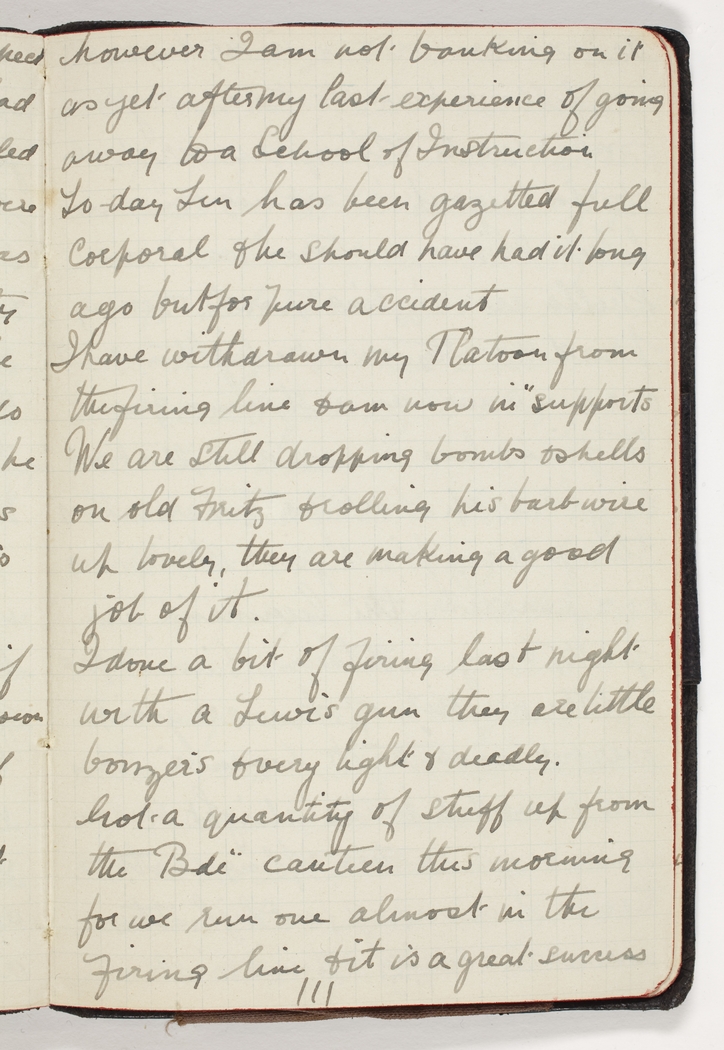 however I am not banking on it
as yet after my last experience of going
away to a School of Instruction
To-day Len has been gazetted full
Corporal & he should have had it long
ago but for pure accident
I have withdrawn my Platoon from
the firing line & am now in "supports
We are still dropping bombs & shells
on old Fritz & rolling his barb wire
up lovely, they are making a good
job of it.
I done a bit of firing last night
with a Lewis gun they are little
bonzers & very light & deadly.
Got a quantity of stuff up from
the "Bde" canteen this morning
for we run one almost in the
firing line & it is a great success
111